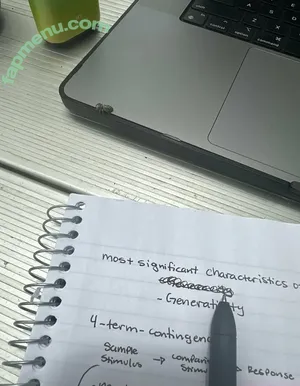 fapmenu.com
most significant characteristics o
- Generativity
4-term-contingenc
Sample → compari → Response
Stimulus Stim